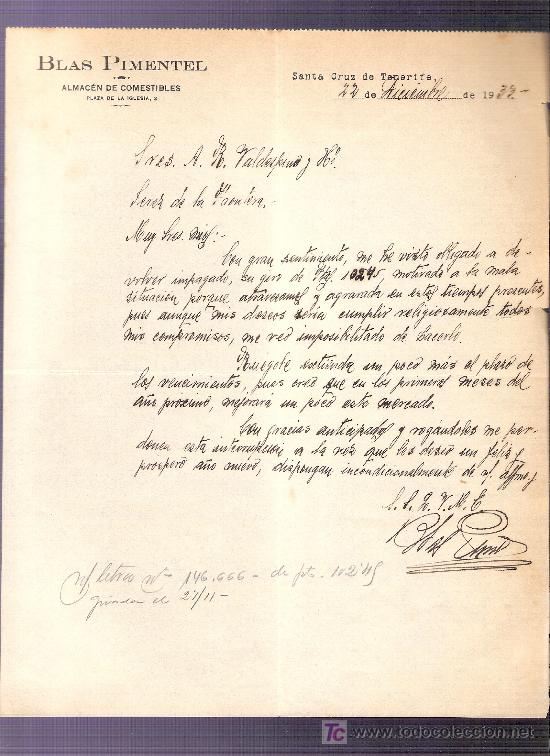 BLAS PIMENTEL
ALMACÉN DE COMESTIBLES
PLAZA DE LA IGLESIA, 2
Santa Cruz de Tenerife,
22 de Diciembre de 1933-
Sres. A. R. Valdespino y Hº.
Jerez de la Frontera.-
Muy Sres. míos:-
Con gran sentimiento, me he visto obligado a de-
volver impagado, su giro de Ptas. 102'45, motivado a la mala
situación porque atravesamos y agravada en estos tiempos presentes,
pues aunque mis deseos sería cumplir religiosamente todos
mis compromisos, me veo imposibilitado de hacerlo.
Ruegole extienda un poco más el plazo de
los vencimientos, pues creo que en los primeros meses del
año próximo, mejorará un poco este mercado.
Con gracias anticipadas y rogandoles me per-
donen esta interrupción a la vez que les deseo un feliz y
prospero año nuevo, dispongan incondicionalmente de s. affmo. y
Blas Pimentel
s/ letra nº 146.666 - de pts. 102'45
girada el 27/11-
TC www.todocoleccion.net